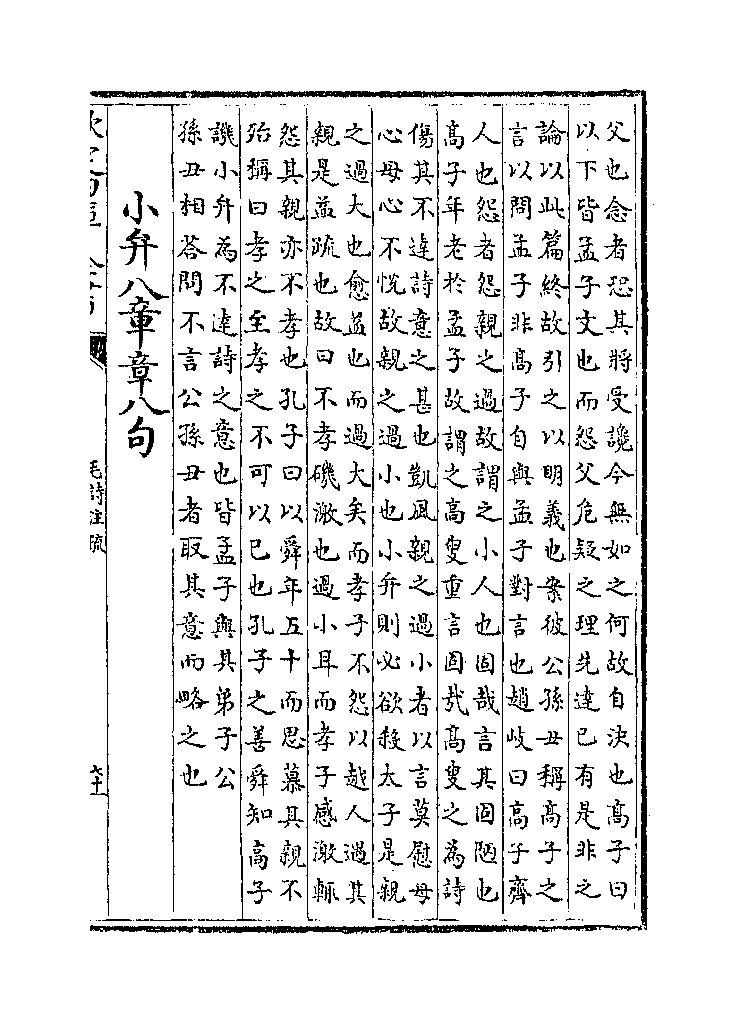 父也念者恐其將受讒今無如之何故自決也髙子曰
以下皆孟子文也而怨父危疑之理先達已有是非之
論以此篇終故引之以明義也案彼公孫丑稱髙子之
言以問孟子非髙子自與孟子對言也趙岐曰髙子齊
人也怨者怨親之過故謂之小人也固哉言其固陋也
髙子年老於孟子故謂之高叟重言固哉髙叟之為詩
傷其不達詩意之甚也凱風親之過小者以言莫慰母
心母心不恱故親之過小也小弁則必欲殺太子是親
之過大也愈益也而過大矣而孝子不怨以越人遇其
親是益疏也故曰不孝磯激也過小耳而孝子感激輒
怨其親亦不孝也孔子曰以舜年五十而思慕其親不
殆稱曰孝之至孝之不可以已也孔子之善舜知高子
譏小弁為不達詩之意也皆孟子與其弟子公
孫丑相荅問不言公孫丑者取其意而略之也
小弁八章章八句
毛詩注疏